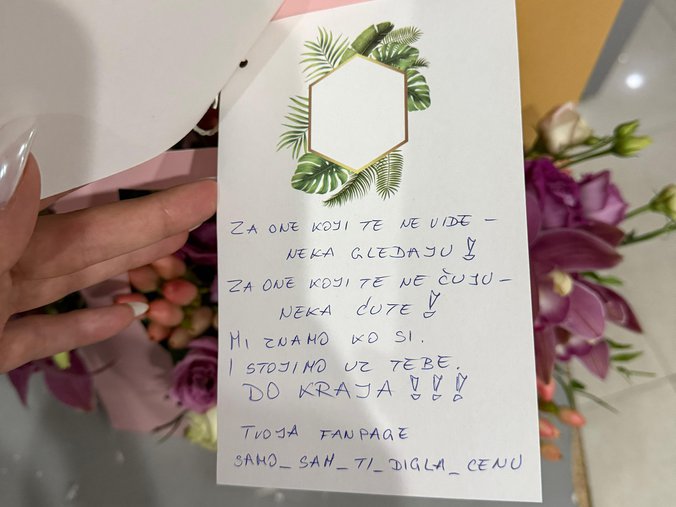 ZA ONE KOJI TE NE VIDE –
NEKA GLEDAJU!
ZA ONE KOJI TE NE ČUJU –
NEKA ĆUTE!
MI ZNAMO KO SI.
I STOJIMO UZ TEBE.
DO KRAJA!!!
TVOJA FANPAGE
SAMO_SAM_TI_DIGLA_CENU